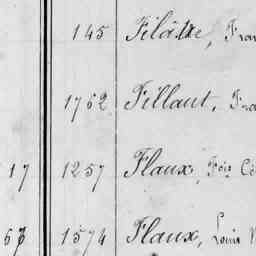 145 Filâtre, Fran
1762 Fillaut, Fra
17 1257 Flaux, Fois Cé
67 1574 Flaux, Louis